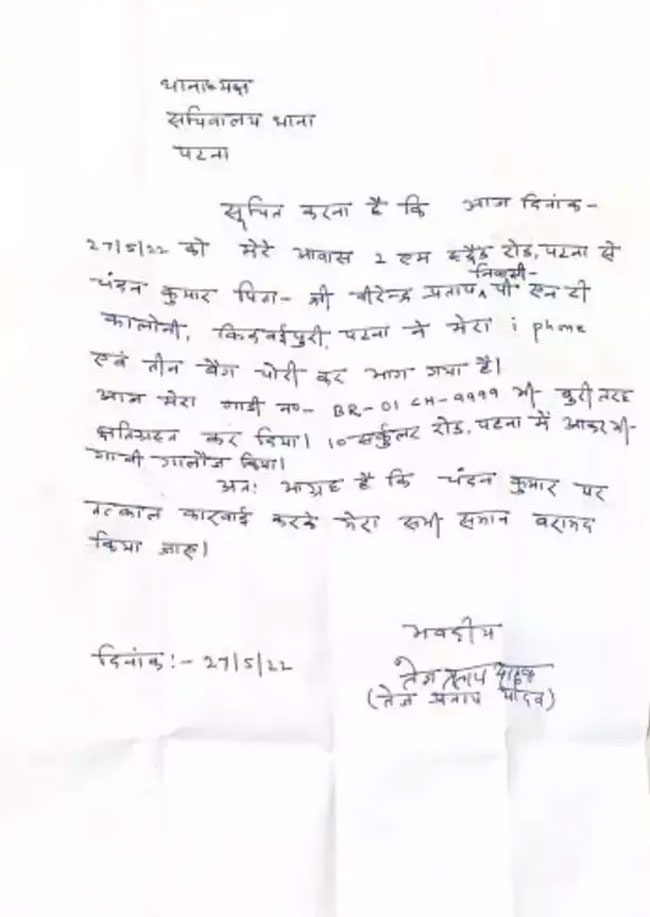 थानाध्यक्ष
सचिवालय थाना
पटना
सूचित करना है कि आज दिनांक-
27/5/22 को मेरे आवास 2 एम स्ट्रैंड रोड, पटना से
निवासी-
चंदन कुमार पिता- श्री वीरेन्द्र प्रताप, पी एन टी
कालोनी, किदवईपुरी, पटना ने मेरा i phone
एवं तीन बैग चोरी कर भाग गया है।
आज मेरा गाडी न०- BR-01 CH-9999 भी बुरी तरह
क्षतिग्रस्त कर दिया। 10 सर्कुलर रोड, पटना में आकर भी-
गाली गलौज किया।
अतः आग्रह है कि चंदन कुमार पर
तत्काल कारवाई करके मेरा सभी समान बरामद
किया जाए।
भवदीय
दिनांक:- 27/5/22
तेज प्रताप यादव
(तेज प्रताप यादव)